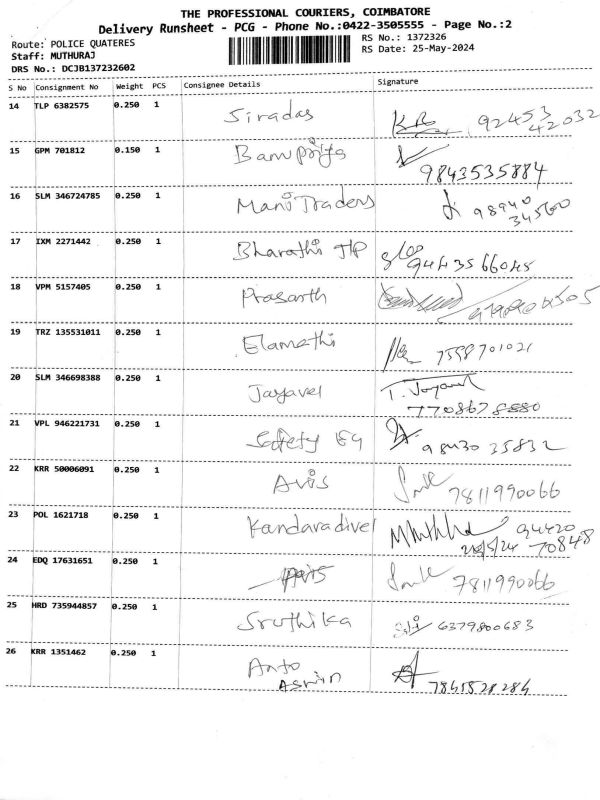 THE PROFESSIONAL COURIERS, COIMBATORE
Delivery Runsheet - PCG - Phone No.:0422-3505555 - Page No.:2
Route: POLICE QUATERES RS No.: 1372326
Staff: MUTHURAJ RS Date: 25-May-2024
DRS No.: DCJB137232602
S No Consignment No Weight PCS Consignee Details Signature
14 TLP 6382575 0.250 1 Siradas 92453
42032
15 GPM 701812 0.150 1 Banupriya
9843535884
16 SLM 346724785 0.250 1 Mani Traders 98940
34560
17 IXM 2271442 0.250 1 Bharathi JTP
9443566045
18 VPM 5157405 0.250 1 Prasanth
19 TRZ 135531011 0.250 1 Elamathi 7558701021
20 SLM 346698388 0.250 1 Jayavel T. Jayavel
21 VPL 946221731 0.250 1 Safety Eq 98430 35832
22 KRR 50006091 0.250 1 Avis 7811990066
23 POL 1621718 0.250 1 Kandavadivel 94420
25/5/24 70848
24 EDQ 17631651 0.250 1 Avis 7811990066
25 HRD 735944857 0.250 1 Sruthika 6379800683
26 KRR 1351462 0.250 1 Anto
Aswin 7845528284